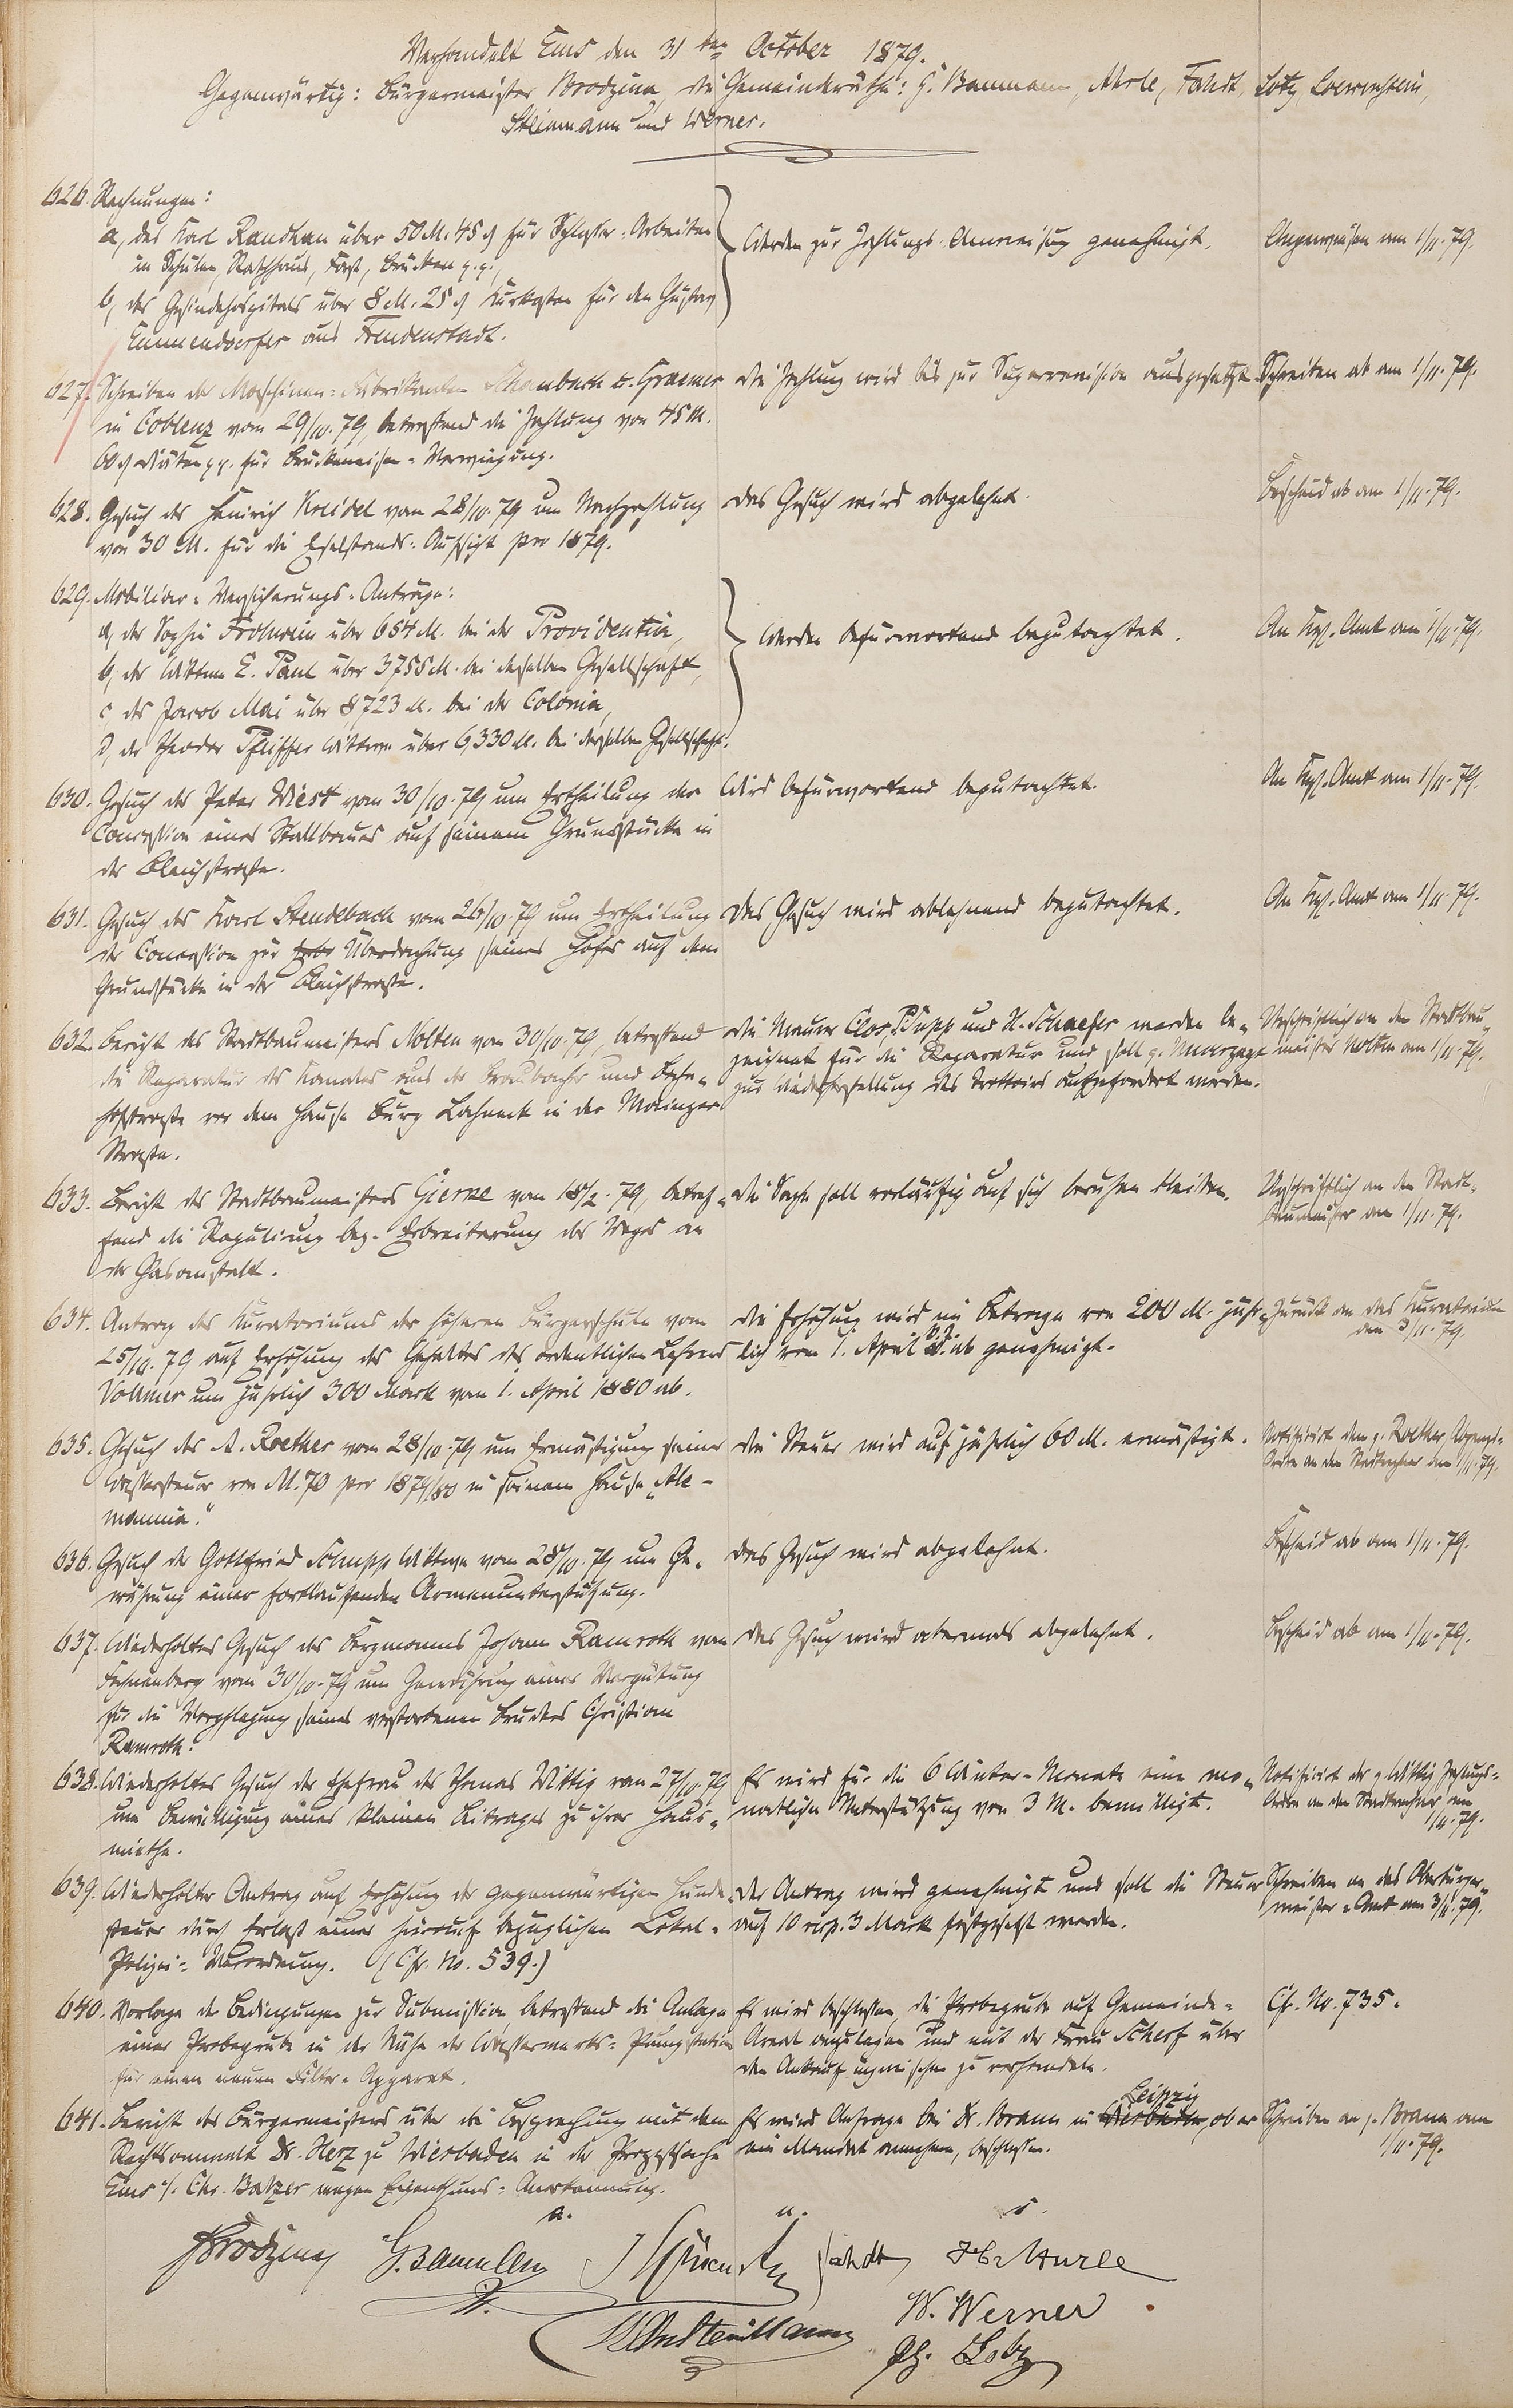 Verhandelt Ems den 31ten October 1879.
Gegenwärtig: Bürgermeister Brodzina, die Gemeinderäthe: G. Baumann, Ahrle, Fahdt, Lotz, Loewenstein,
Steinmann und Werner.
626. Rechnungen:
a, des Karl Randhan über 50 M. 45 ₰ für Schlosser-Arbeiten
in Schulen, Rathhaus, Forst, Brücken p.p.,
b, des Gesindehospitals über 8 M. 25 ₰ Kurkosten für den Gustav
Emmendoerfer aus Freudenstadt.
Werden zur Zahlungs-Anweisung genehmigt.
Angewiesen am 1/11. 79.
627. Schreiben der Maschinen-Fabrikanten Schaubach u. Graemer
in Coblenz vom 29/10. 79, betreffend die Zahlung von 45 M.
60 ₰ Diäten pp. für Brückeneisen-Verwiegung.
Die Zahlung wird bis zur Superrevision ausgesetzt.
Schreiben ab am 1/11. 79.
628. Gesuch des Heinrich Kreidel vom 28/10. 79 um Nachzahlung
von 30 M. für die Eselstands-Aufsicht pro 1879.
Das Gesuch wird abgelehnt.
Bescheid ab am 1/11. 79.
629. Mobiliar-Versicherungs-Anträge:
a, der Sophie Frohwein über 654 M. bei der Providentia,
b, der Wittwe E. Paul über 3755 M. bei derselben Gesellschaft,
c, des Jacob Mai über 8723 M. bei der Colonia,
d, der Theodor Pfeiffer Wittwe über 6,330 M. bei derselben Gesellschaft.
Werden befürwortend begutachtet.
An Kgl. Amt am 1/11. 79.
630. Gesuch des Peter Wiest vom 30/10. 79 um Ertheilung der
Concession eines Stallbaues auf seinem Grundstücke in
der Bleichstraße.
Wird befürwortend begutachtet.
An Kgl. Amt am 1/11. 79.
631. Gesuch des Karl Steudebach vom 26/10. 79 um Ertheilung
der Concession zur Überdachung seines Hofes auf dem
Grundstücke in der Bleichstraße.
Das Gesuch wird ablehnend begutachtet.
An Kgl. Amt am 1/11. 79.
632. Bericht des Stadtbaumeisters Nolten vom 30/10. 79, betreffend
die Reparatur des Kanales aus der Braubacher und Bahn-
hofstraße vor dem Hause Burg Lahneck in der Mainzer
Straße.
Die Maurer Clos, Supp und H. Schaefer werden be-
zeichnet für die Reparatur und soll p.
zur Wiederherstellung des Trottoirs aufgefordert werden.
Urschriftlich an den Stadtbau-
meister Nolten am 1/11. 79.
633. Bericht des Stadtbaumeisters Gierne vom 18/2. 79, betref-
fend die Regulirung bez. Erbreiterung des Weges an
der Gasanstalt.
Die Sache soll vorläufig auf sich beruhen bleiben.
Urschriftlich an den Stadt-
baumeister am 1/11. 79.
634. Antrag des Kuratoriums der höheren Bürgerschule vom
25/10. 79 auf Erhöhung des Gehaltes des ordentlichen Lehrers
Vollmer um jährlich 300 Mark vom 1. April 1880 ab.
Die Erhöhung wird im Betrage von 200 M. jähr-
lich vom 1. April ab genehmigt.
Zurück an das Kuratorium
den 3/11. 79.
635. Gesuch des A. Roether vom 28/10. 79 um Ermäßigung seiner
Wassersteuer von M. 70 pro 1879/80 in seinem Hause „Ale-
mannia“.
Die Steuer wird auf jährlich 60 M. ermäßigt.
Notificirt dem p. Roether, Abgangs-
Order an den Stadtrechner den 1/11. 79.
636. Gesuch der Gottfried Schupp Wittwe vom 28/10. 79 um Ge-
währung einer fortlaufenden Armenunterstützung.
Das Gesuch wird abgelehnt.
Bescheid ab am 1/11. 79.
637. Wiederholtes Gesuch des Bergmannes Johann Ramroth von
Fachenberg vom 30/10. 79 um Gewährung einer Vergütung
für die Verpflegung seines verstorbenen Bruders Christian
Ramroth.
Das Gesuch wird abermals abgelehnt.
Bescheid ab am 1/11. 79.
638. Wiederholtes Gesuch der Ehefrau des Thomas Wittig vom 27/10. 79
um Bewilligung eines kleinen Beitrages zu ihrer Haus-
miethe.
Es wird für die 6 Winter-Monate eine mo-
natliche Unterstützung von 3 M. bewilligt.
Notificirt der p. Wittig, Zahlungs-
Order an den Stadtrechner am
1/11. 79.
639. Wiederholter Antrag auf Erhöhung der gegenwärtigen Hunde-
steuer durch Erlaß einer hierauf bezüglichen Lokal-
Polizei-Verordnung. (Cfr. No. 539.)
Der Antrag wird genehmigt und soll die Steuer
auf 10 resp. 3 Mark festgesetzt werden.
Schreiben an das Oberbürger-
meister-Amt am 3/11. 79.
640. Vorlage der Bedingungen zur Submission, betreffend die Anlage
einer Probegrube in der Nähe der Wasserwerks-Pumpstation
für einen neuen Filter-Apparat.
Es wird beschlossen, die Probegrube auf Gemeinde-
Areal anzulegen und mit der Frau Scherf über
den Ankauf inzwischen zu verhandeln.
Cfr. No. 735.
641. Bericht des Bürgermeisters über die Besprechung mit dem
Rechtsanwalt Dr. Herz zu Wiesbaden in der Prozeßsache
Ems ./. Chr. Balzer wegen Eigenthums-Anerkennung.
Es wird Anfrage bei Dr. Braun in Wiesbaden Leipzig, ob er
ein Mandat annehme, beschlossen.
Schreiben an p. Braun am
1/11. 79.
a. u. s.
Brodzina G. Baumann Fahdt Ahrle
W. Werner
Steinmann
Ph. Lotz